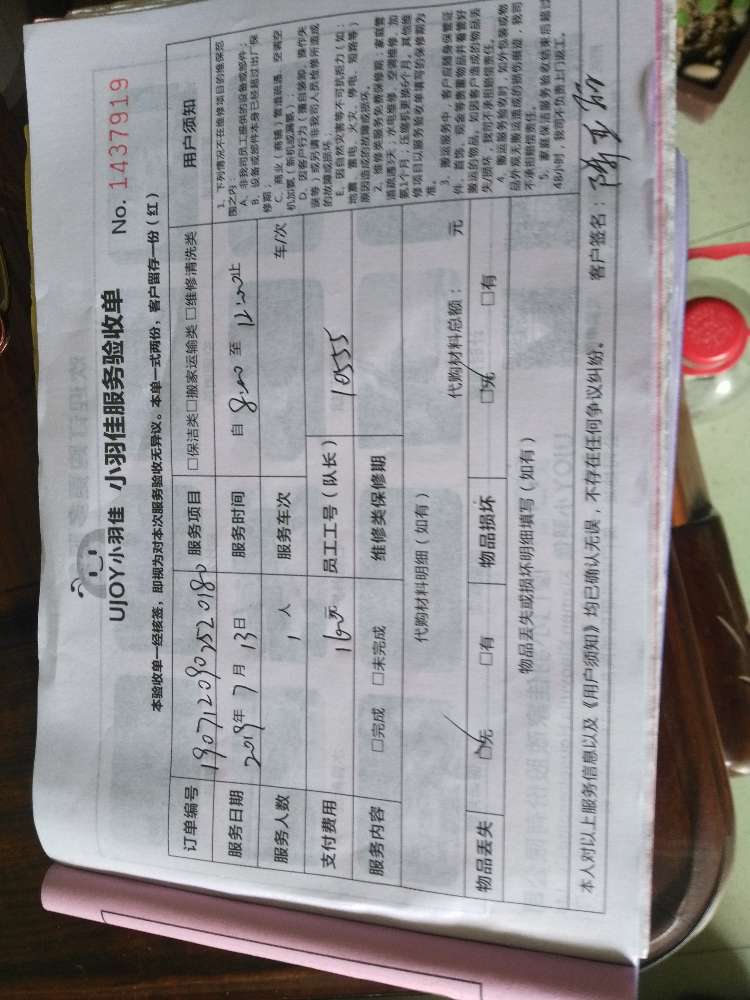 UJOY小羽佳 小羽佳服务验收单
No. 1437919
本验收单一经核签，即视为对本次服务验收无异议。本单一式两份，客户留存一份（红）
订单编号 1907120907520180 服务项目 □保洁类□搬家运输类 □维修清洗类 用户须知
服务日期 2019年 7月 13日 服务时间 自 8:00 至 12:00止
服务人数 1 人 服务车次 车/次
支付费用 160元 员工工号（队长） 10555
服务内容 □完成 □未完成 维修类保修期
代购材料明细（如有） 代购材料总额： 元
物品丢失 □无 □有 物品损坏 □无 □有
物品丢失或损坏明细填写（如有）
1、下列情况不在维修项目的维保范
围之内：
A、非我司员工提供的设备或部件；
B、设备或部件本身已经超过出厂保
修期；
C、商业（商铺）管道疏通、空调空
机加氟（新机或漏氟）
D、因客户行为（擅自装卸、操作失
误等）或另请非我司人员检修所造成
的故障或损坏；
E、因自然灾害等不可抗拒力（如：
地震、雷电、火灾、停电、短路等）
原因造成的故障或损坏。
2、维修类服务免费保修期：家庭管
道疏通3天；水电维修、空调维修、加
氟1个月；压缩机更换6个月。其他维
修项目以服务验收单填写的保修期为
准。
3、搬运服务中，客户应随身保管证
件、首饰、现金等贵重物品并看管好
搬运的物品，如因客户造成的物品丢
失/损坏，我司不承担赔偿责任。
4、搬运服务验收时，如外包装或物
品外观无搬运造成的损伤痕迹，我司
不承担赔偿责任。
5、家庭保洁服务验收结束后超过
48小时，我司不负责上门返工。
本人对以上服务信息以及《用户须知》均已确认无误，不存在任何争议纠纷。 客户签名：